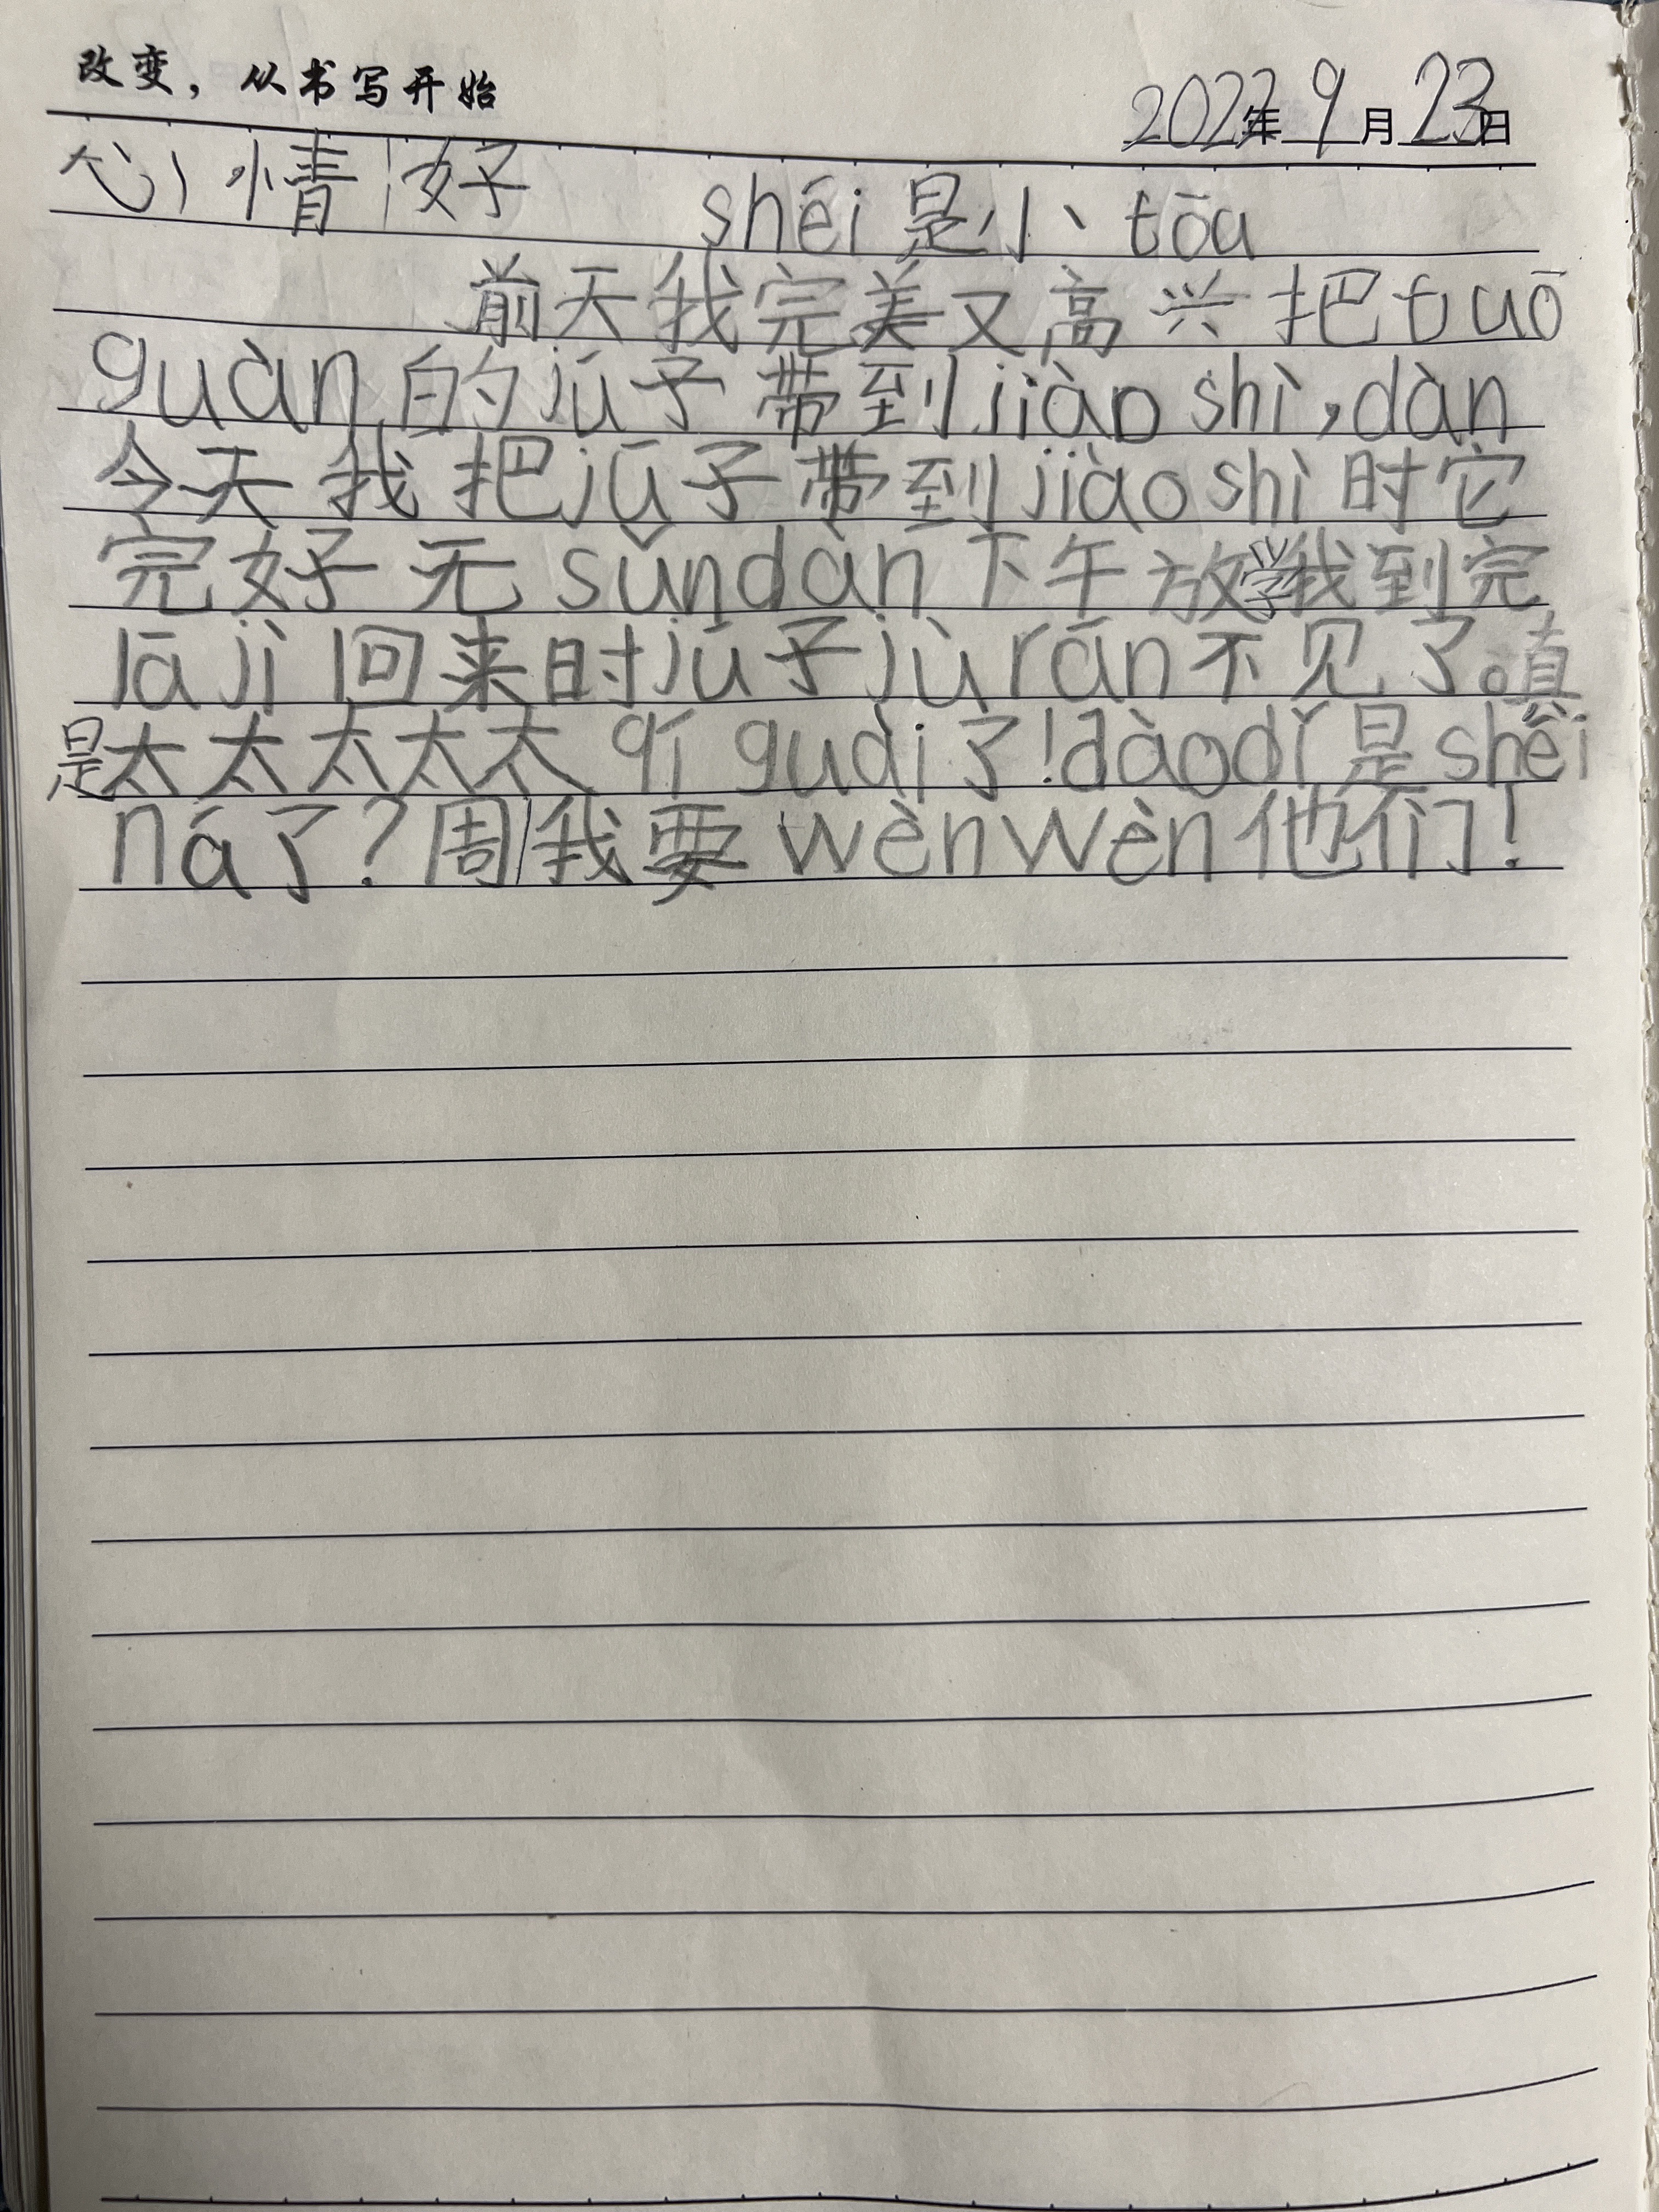 改变，从书写开始
2022年9月23日
心情好 shéi是小tōu
前天我完美又高兴把tuō
guàn的jú子带到jiào shì，dàn
今天我把jǘ子带到jiào shì时它
完好无sǔndàn下午放学我到完
lā jì回来时jú子jù rán不见了真
是太太太太太qí guài了！dàodǐ是shéi
ná了？周我要wèn wèn他们！